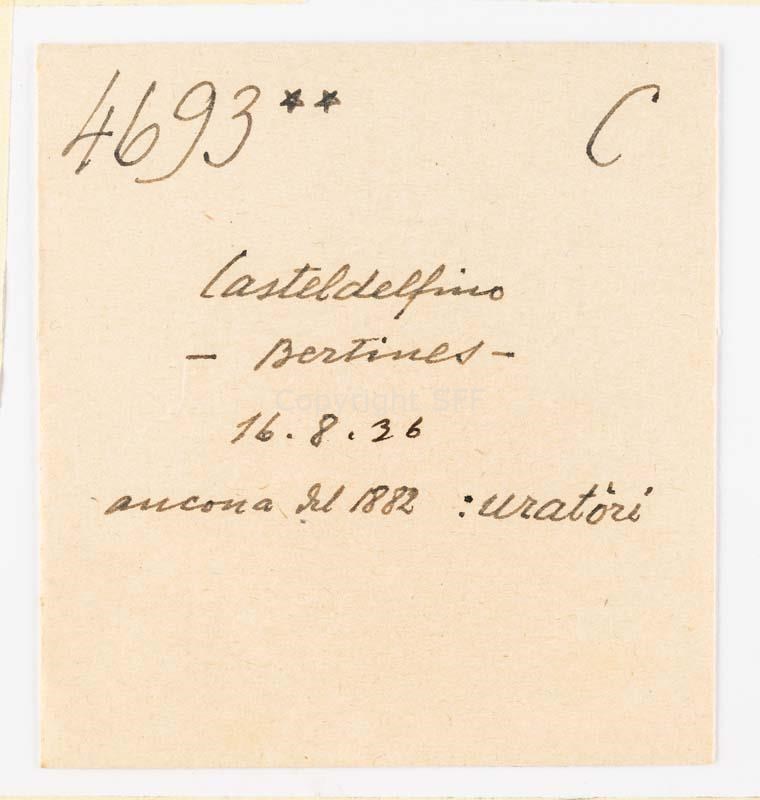 4693** C
Casteldelfino
- Bertines -
Copyright SEF
16.8.36
ancona del 1882 : uratöri